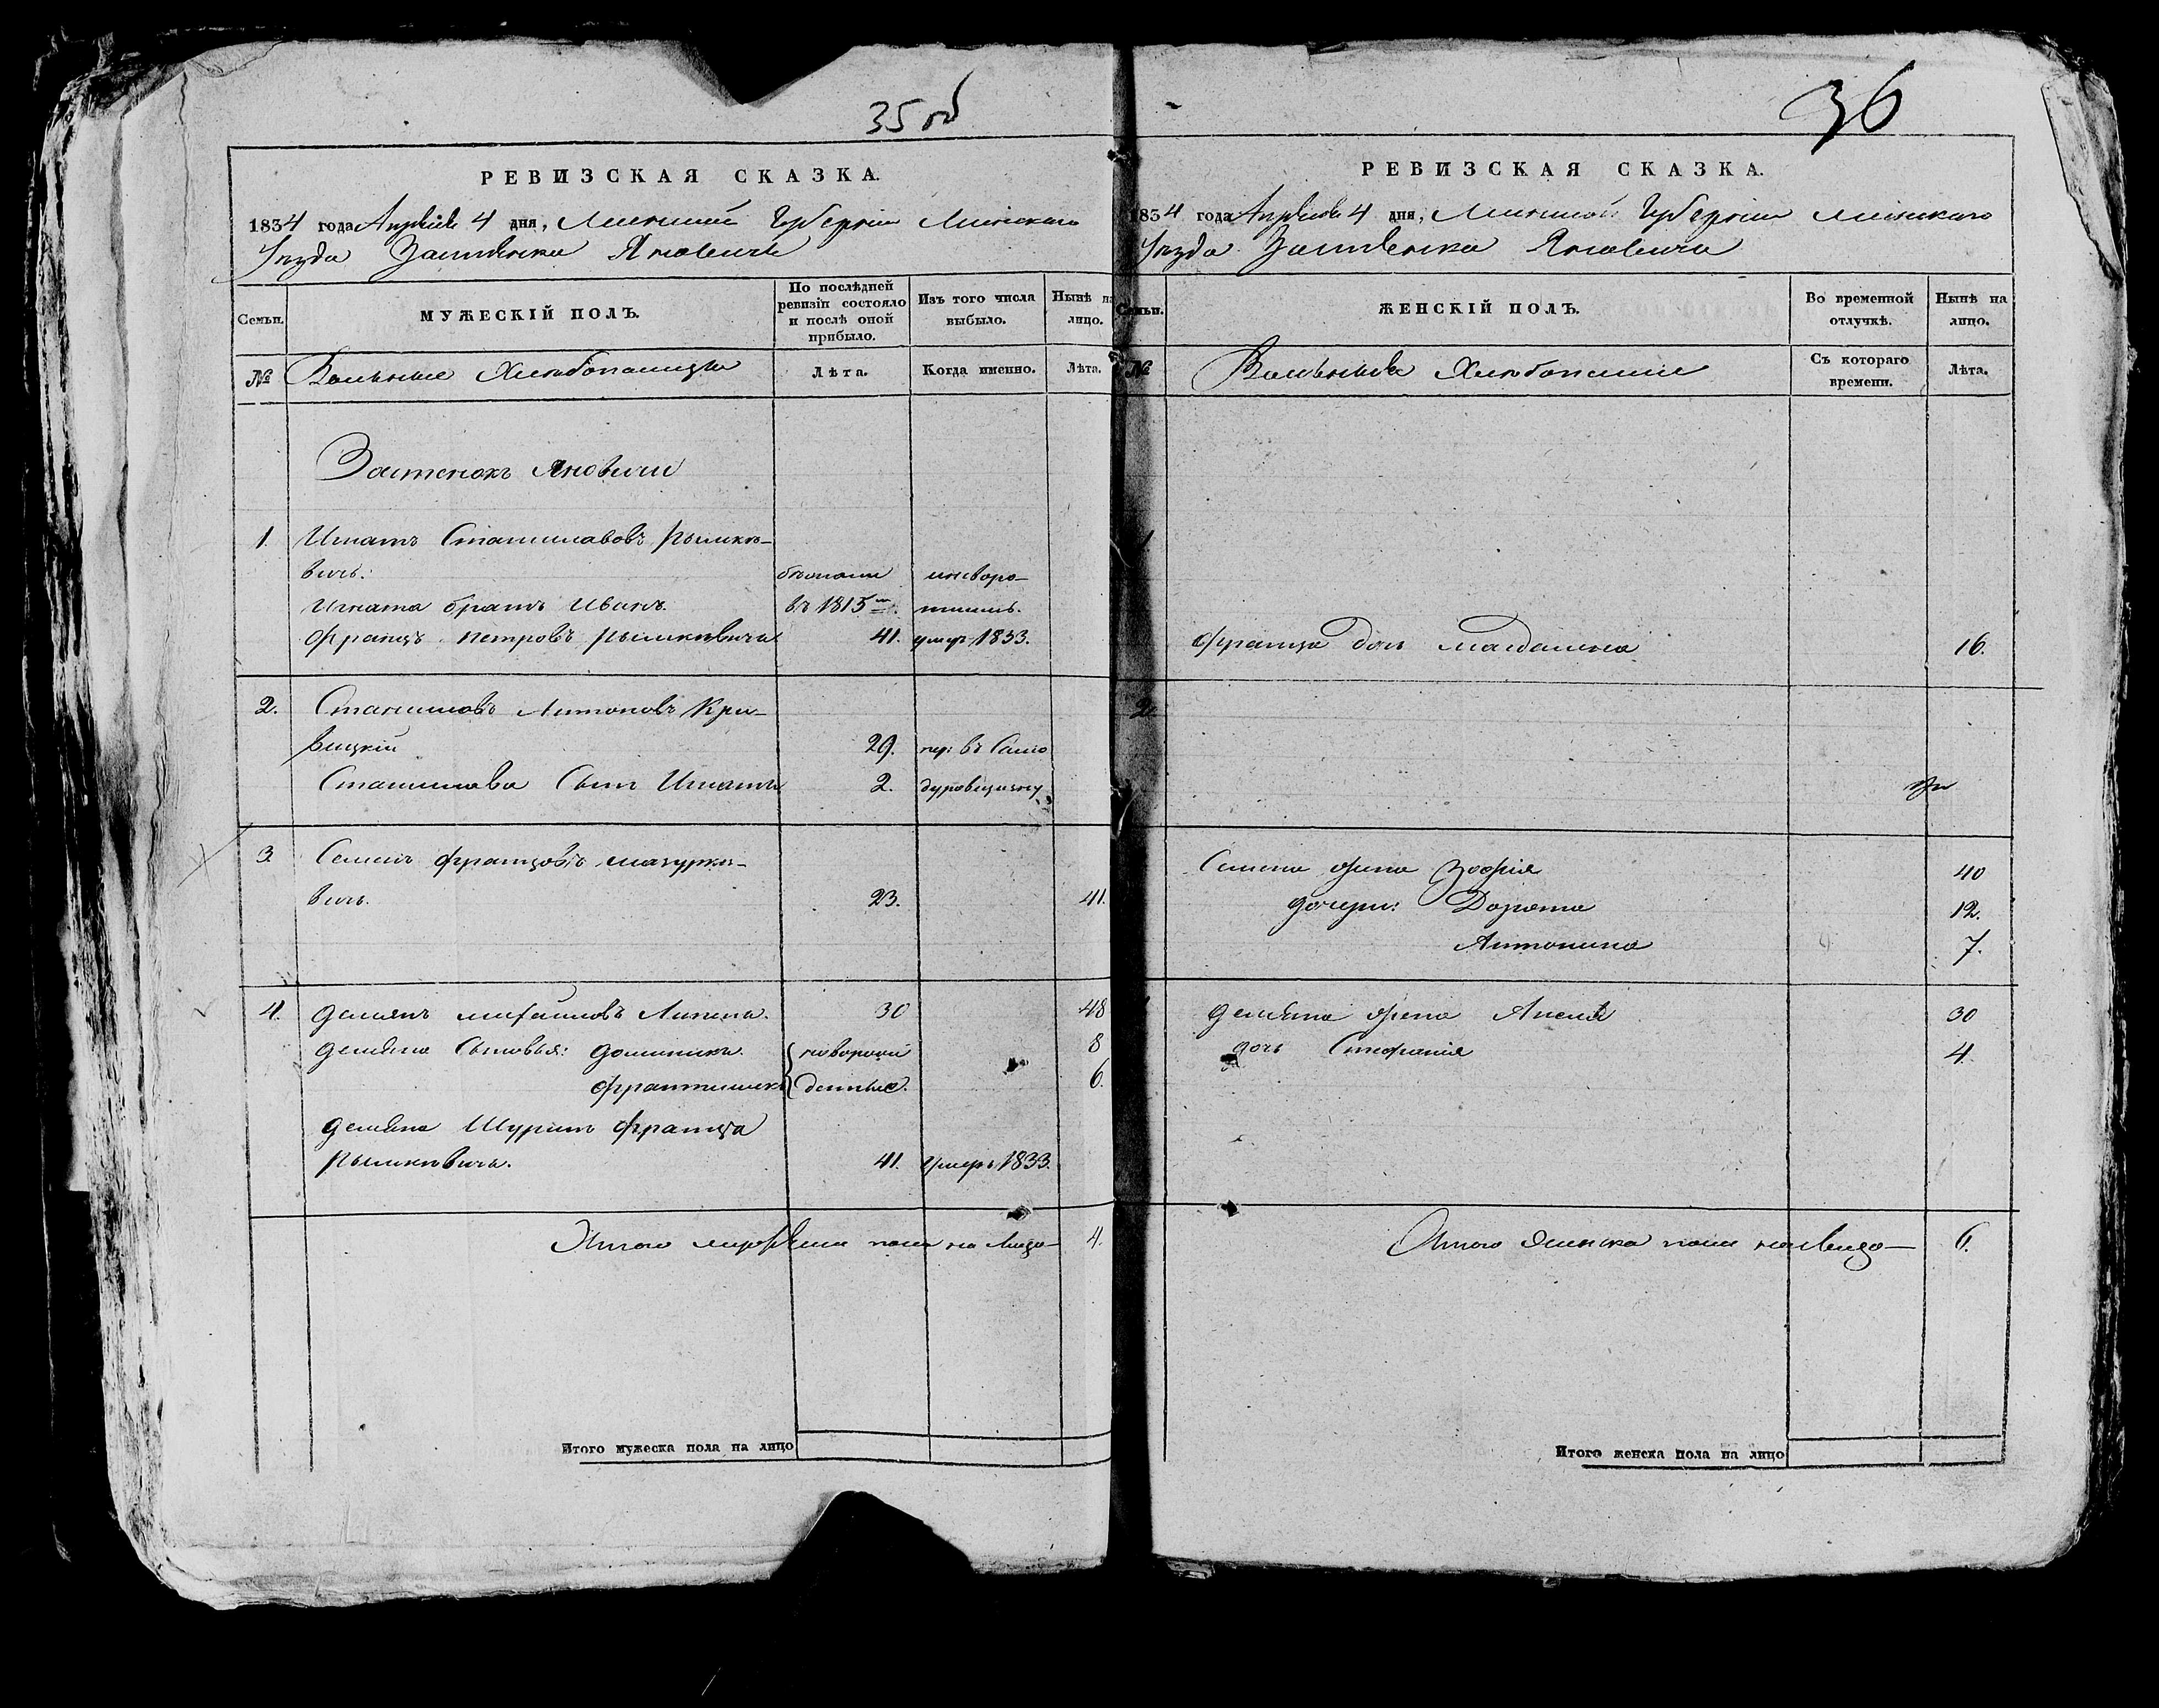 35 об
РЕВИЗСКАЯ СКАЗКА.
1834 года Апреля 4 дня, Минской Губернии Минского
Уезда Застенка Яновичъ
Семьи.
МУЖЕСКІЙ ПОЛЪ.
По послѣдней ревизіи состояло и послѣ оной прибыло.
Изъ того числа выбыло.
Нынѣ на лицо.
№
Вольные Хлебопашцы
Лѣта.
Когда именно.
Лѣта.
Застенокъ Яновичи
1. Игнатъ Станиславовъ Рымке-
вичъ.
Игната братъ Иванъ. въ 1815
Францъ Петровъ Рымкевичъ 41. умеръ 1833.
2. Станиславъ Антоновъ Кри-
вицкій 29. пер: въ Само
Станислава Сынъ Игнатъ 2. дуровщизну
3. Семенъ Францовъ Мазурке-
вичъ. 23. 41.
4. Демьянъ Михайловъ Липень. 30 48
Демьяна Сыновья: Доминикъ. новорож 8
Францишекъ денные. 6.
Демьяна Шуринъ Франца
Рымкевичъ. 41. Умеръ 1833.
Итого мужеска пола на лицо 4.
Итого мужеска пола на лицо
36
РЕВИЗСКАЯ СКАЗКА.
1834 года Апреля 4 дня, Минской Губернии Минского
Уезда Застенка Яновичи
Семьи.
ЖЕНСКІЙ ПОЛЪ.
Во временной отлучкѣ.
Нынѣ на лицо.
№
Вольные Хлебопашцы
Съ котораго времени.
Лѣта.
1
Франца дочь Магдалина 16.
2.
Семена жена Зофія 40
Дочери: Дорота 12.
Антонина 7.
Демьяна жена Анеля 30
дочь Стефанія 4.
Итого Женска пола на лицо 6.
Итого женска пола на лицо